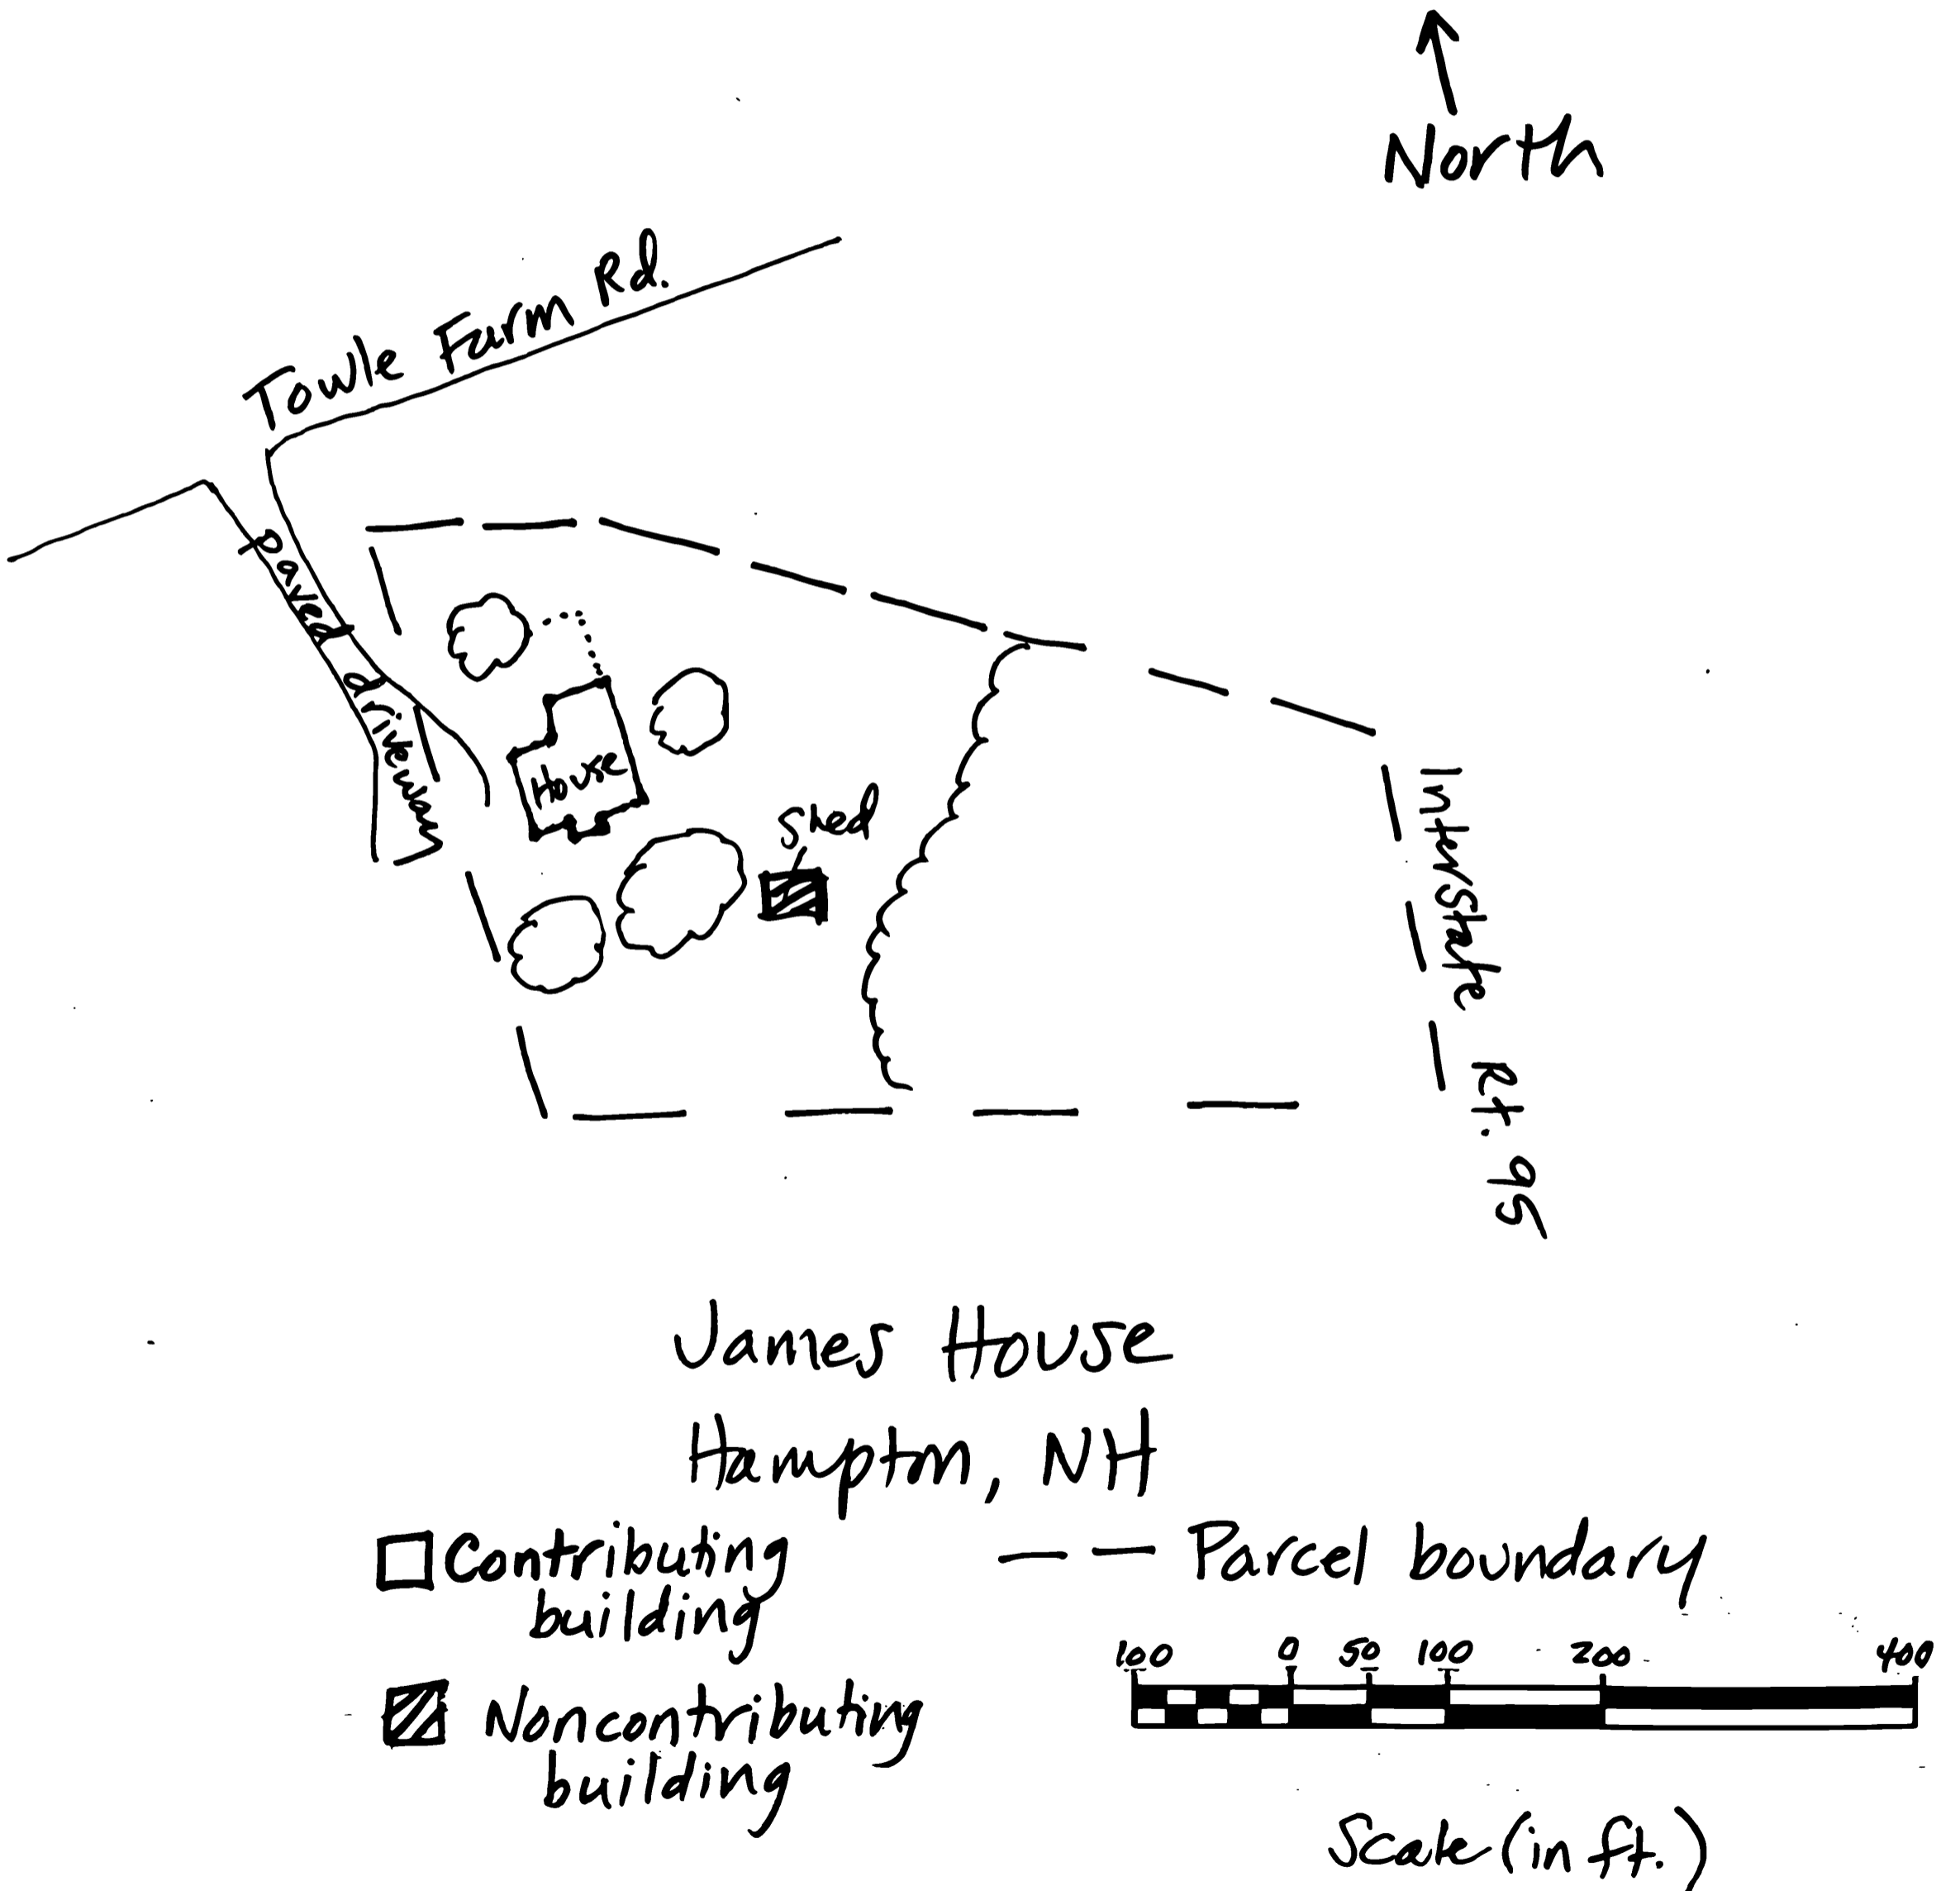 North
Towle Farm Rd.
Paved driveway
House
Shed
Interstate Rt. 95
James House
Hampton, NH
Contributing
building
Parcel boundary
Noncontributing
building
100 0 50 100 200 400
Scale (in ft.)